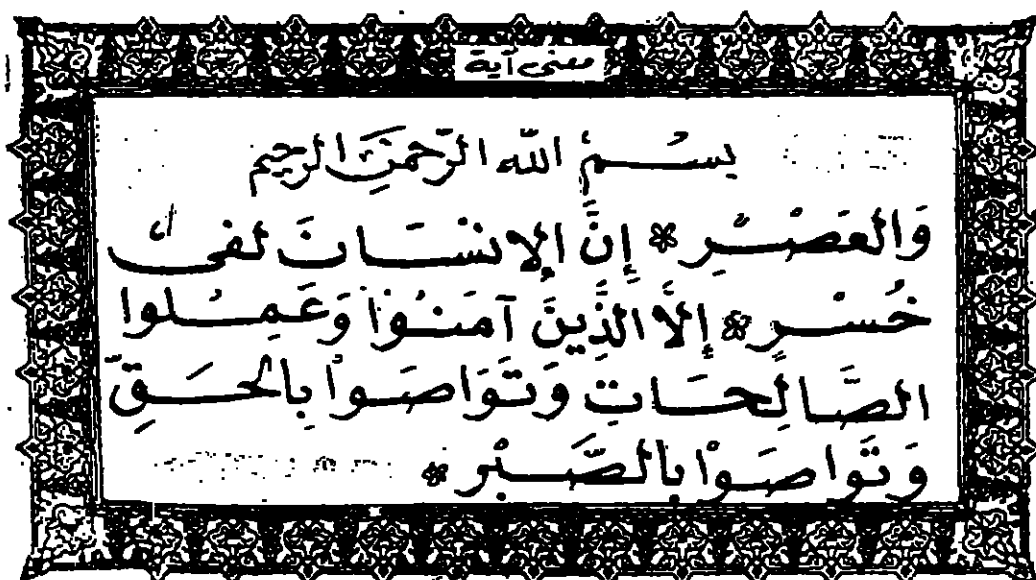 معنى آية
بِسْمِ اللّه الرَّحمنِ الرحيم
وَالعَصْرِ * إِنَّ الإِنسَانَ لفي
خُسْرٍ * إِلاَّ الَّذِينَ آمَنُوا وَعَمِلُوا
الصَّالِحَاتِ وَتَوَاصَوْا بِالحَقِّ
وَتَوَاصَوْا بِالصَّبْرِ *